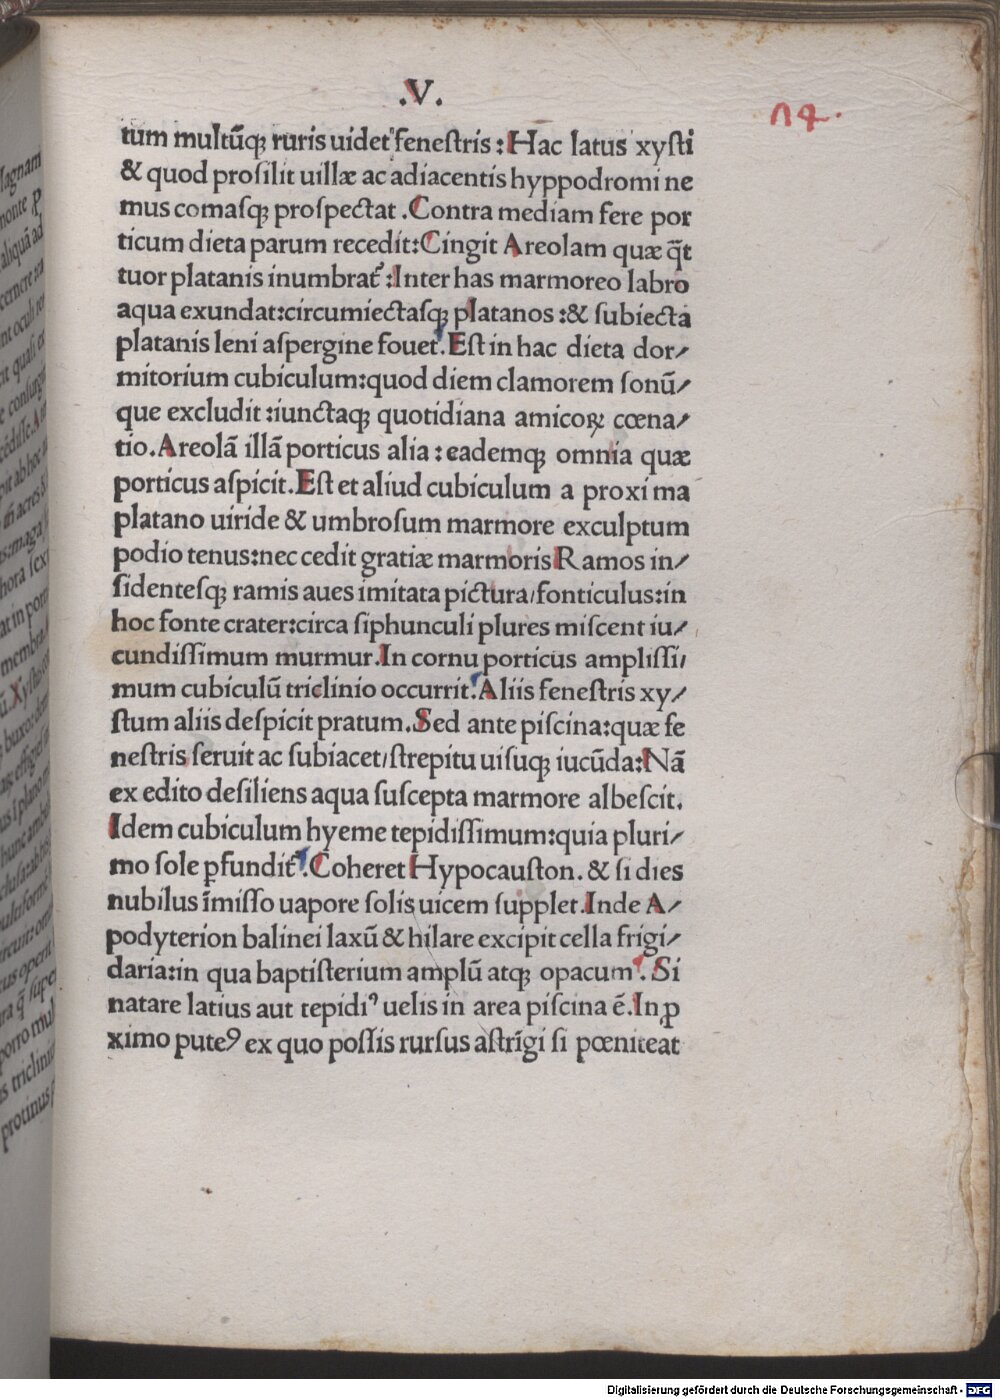 .V.
74.
tum multūqꝫ ruris uidet᷑ fenestris : Hac latus xysti
& quod prosilit uillæ ac adiacentis hyppodromi ne
mus comasqꝫ prospectat . Contra mediam fere por
ticum dieta parum recedit: Cingit Areolam quæ q̄t
tuor platanis inumbrat᷑ : Inter has marmoreo labro
aqua exundat: circumiectasqꝫ platanos : & subiecta
platanis leni aspergine fouet. Est in hac dieta dor/
mitorium cubiculum: quod diem clamorem sonū/
que excludit : iunctaqꝫ quotidiana amicoꝝ cœna/
tio. Areolā illā porticus alia : eademqꝫ omnia quæ
porticus aspicit. Est et aliud cubiculum a proxima
platano uiride & umbrosum marmore exculptum
podio tenus: nec cedit gratiæ marmoris Ramos in/
sidentesqꝫ ramis aues imitata pictura/ fonticulus: in
hoc fonte crater: circa siphunculi plures miscent iu/
cundissimum murmur. In cornu porticus amplissi/
mum cubiculū triclinio occurrit. Aliis fenestris xy/
stum aliis despicit pratum. Sed ante piscina: quæ fe
nestris seruit ac subiacet/ strepitu uisuqꝫ iucūda: Nā
ex edito desiliens aqua suscepta marmore albescit.
Idem cubiculum hyeme tepidissimum: quia pluri/
mo sole ꝑfundit᷑. Coheret Hypocauston. & si dies
nubilus īmisso uapore solis uicem supplet. Inde A/
podyterion balinei laxū & hilare excipit cella frigi/
daria: in qua baptisterium amplū atqꝫ opacum. Si
natare latius aut tepidiꝰ uelis in area piscina ē. In ꝓ
ximo puteꝰ ex quo possis rursus astrīgi si pœniteat
Digitalisierung gefördert durch die Deutsche Forschungsgemeinschaft - DFG